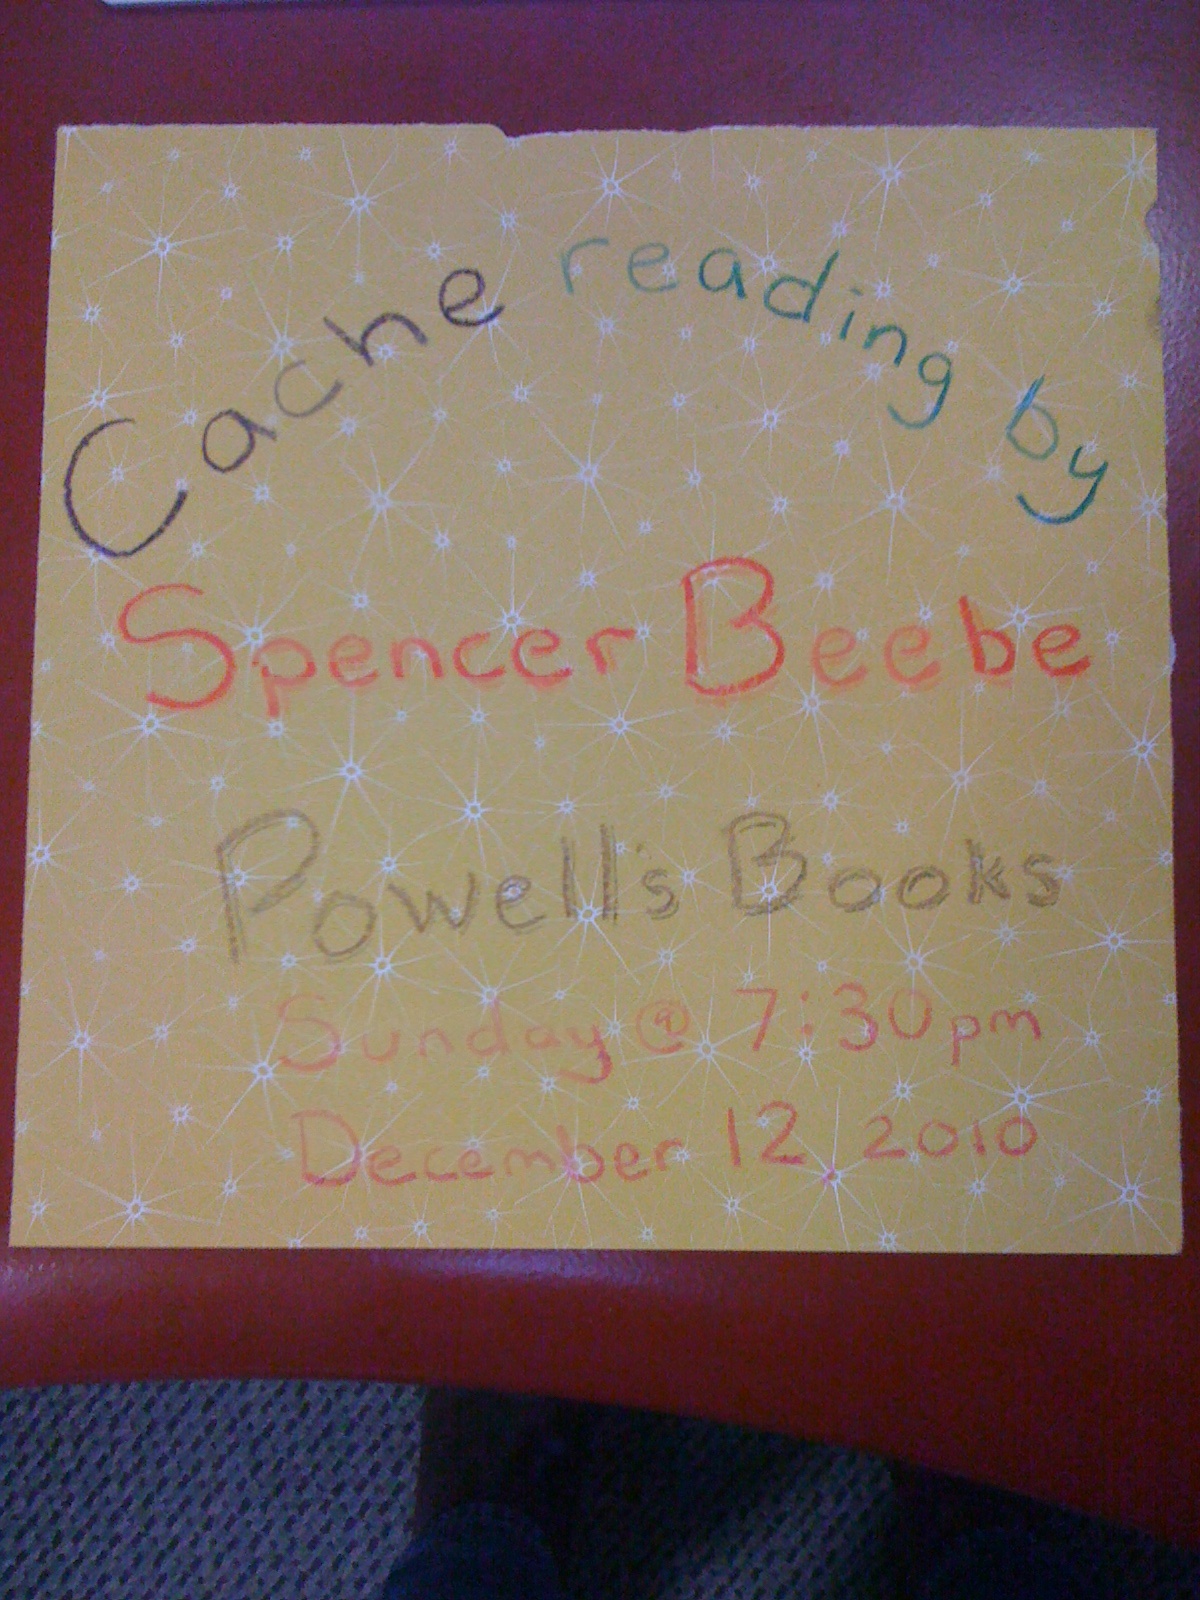 Cache reading by
Spencer Beebe
Powell's Books
Sunday @ 7:30pm
December 12 2010